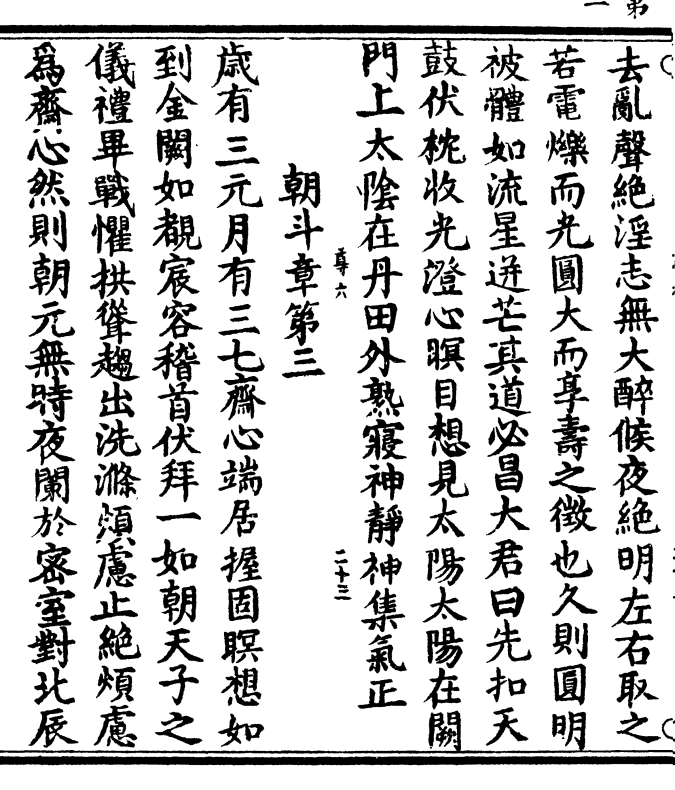 第一
去亂聲絶淫志無大醉候夜絶明左右取之
若電爍而光圓大而享壽之徴也久則圓明
被體如流星迸芒其道必昌大君曰先扣天
鼓伏枕收光澄心瞑目想見太陽太陽在闕
門上太陰在丹田外熟寢神靜神集氣正
尊六 二十三
朝斗章第三
歲有三元月有三七齋心端居握固瞑想如
到金闕如覩宸容稽首伏拜一如朝天子之
儀禮畢戰懼拱聳趨出洗滌煩慮止絶煩慮
爲齋心然則朝元無時夜闌於密室對北辰